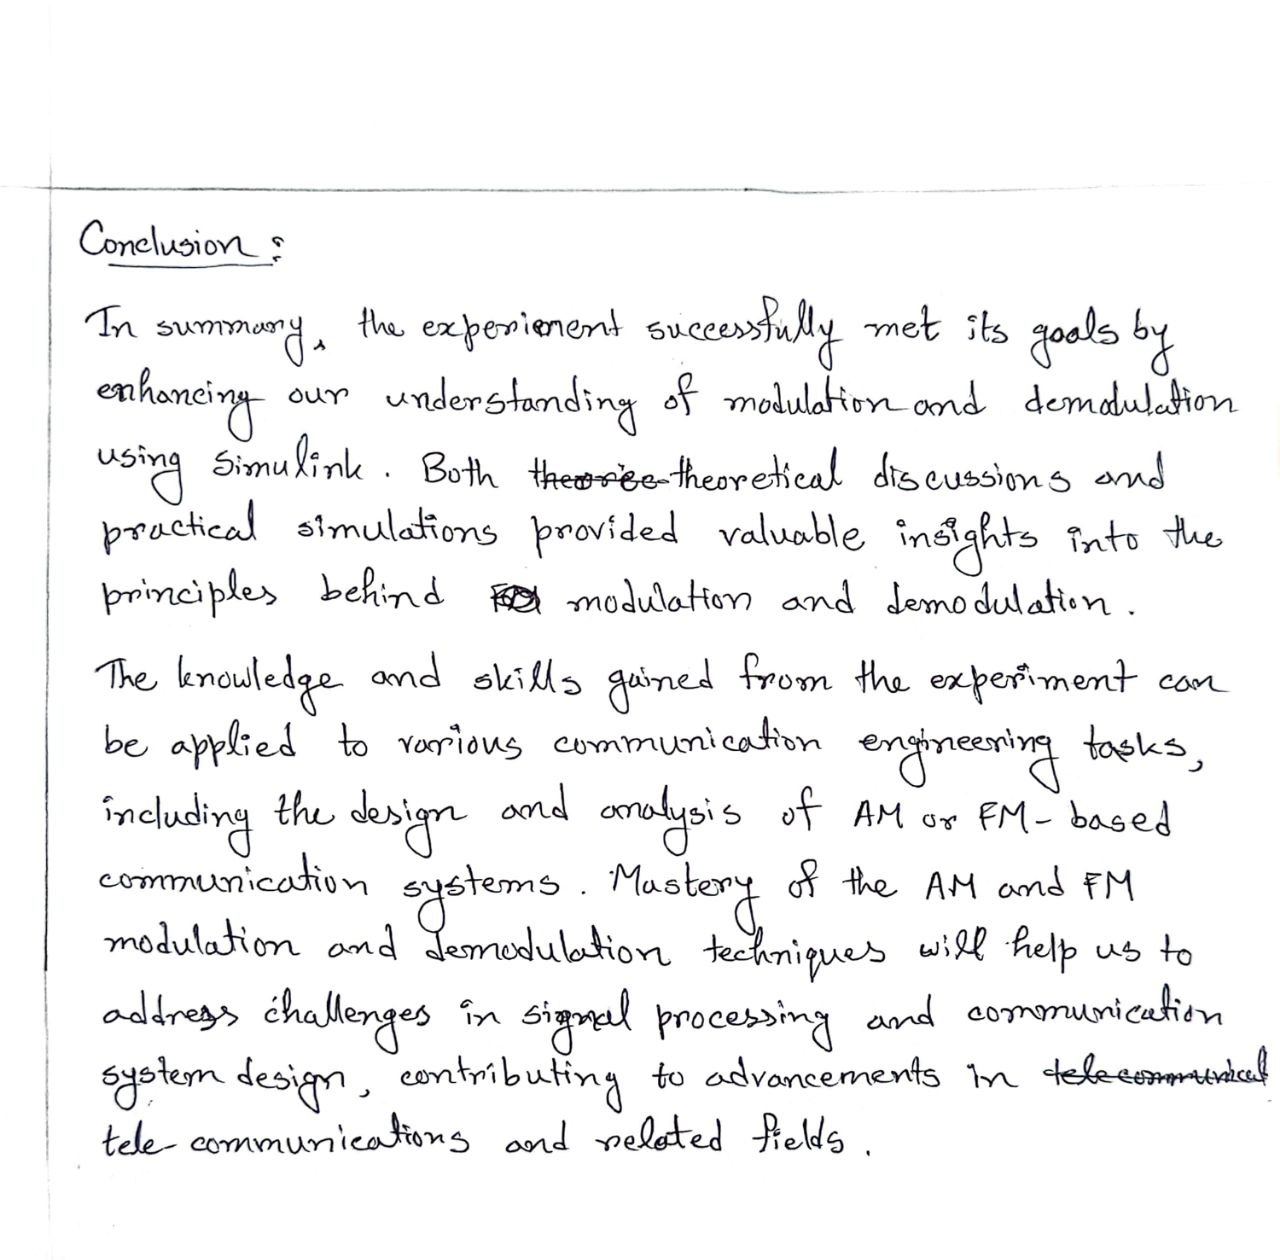 Conclusion :
In summary, the experiement successfully met its goals by
enhancing our understanding of modulation and demodulation
using Simulink. Both theoretical discussions and
practical simulations provided valuable insights into the
principles behind modulation and demodulation.
The knowledge and skills gained from the experiment can
be applied to various communication engineering tasks,
including the design and analysis of AM or FM-based
communication systems. Mastery of the AM and FM
modulation and demodulation techniques will help us to
address challenges in signal processing and communication
system design, contributing to advancements in
tele-communications and related fields.